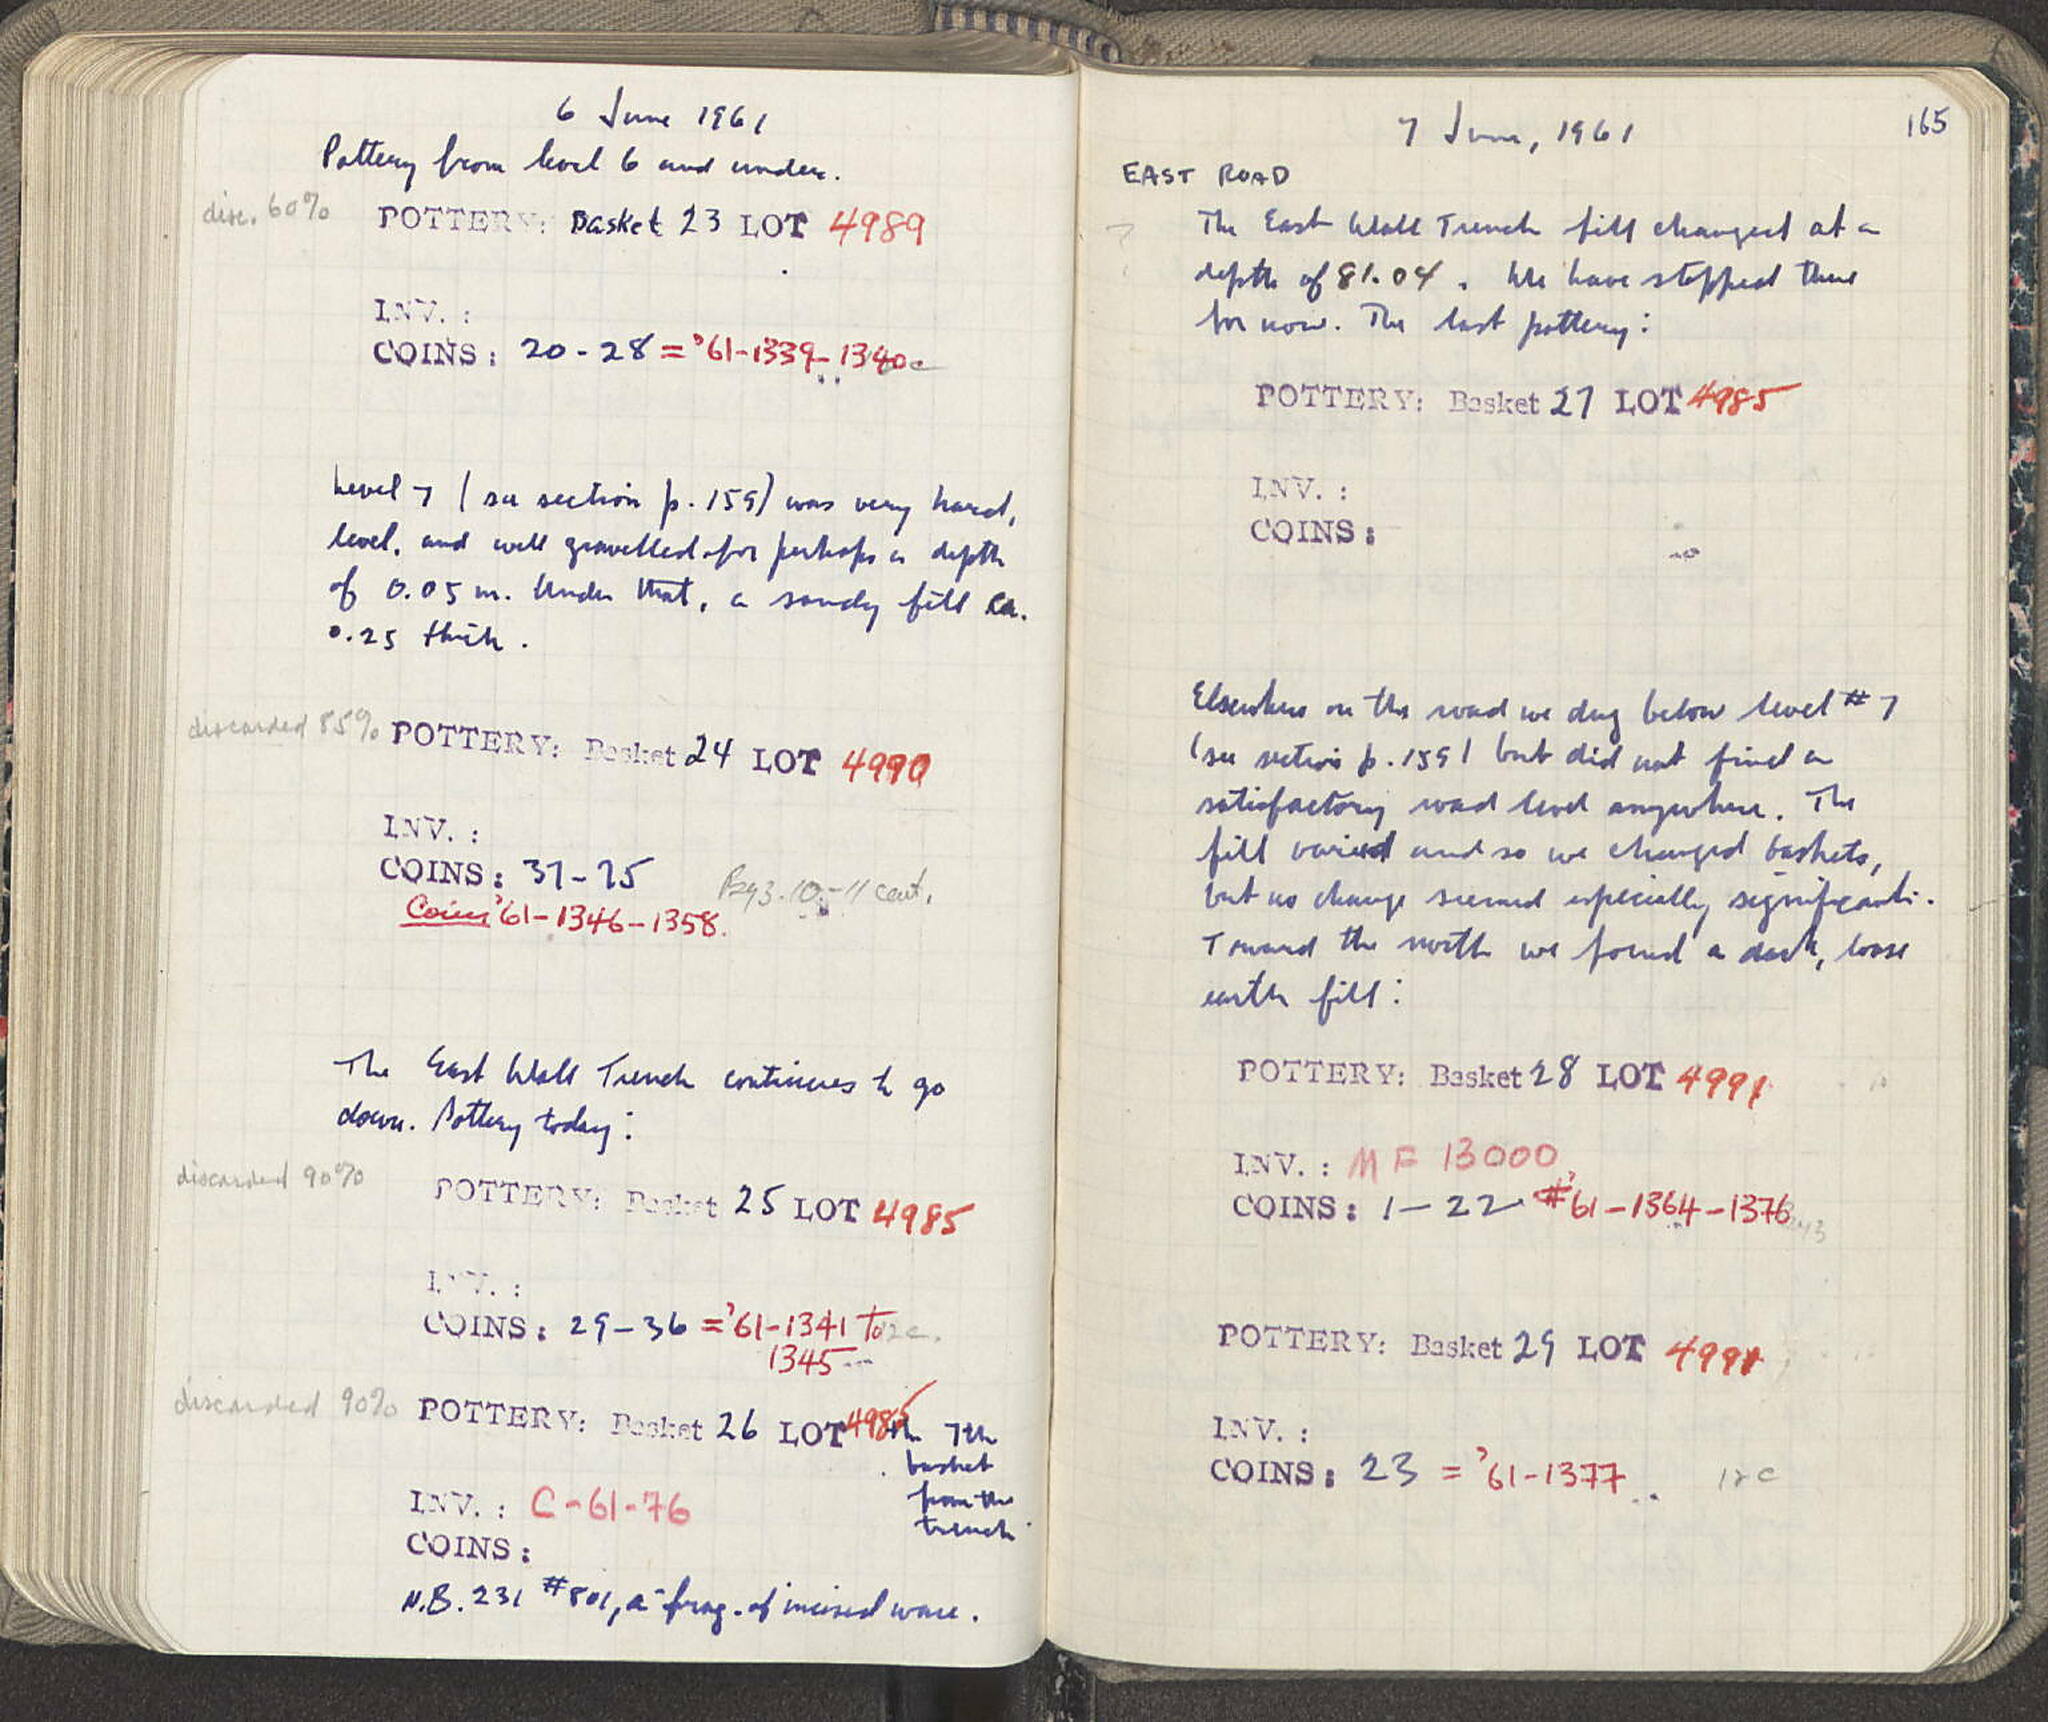 6 June 1961
Pottery from level 6 and under.
disc. 60%
POTTERY: Basket 23 LOT 4989
INV. :
COINS: 20-28 = '61-1339-1340
Level 7 (see section p. 159) was very hard,
level, and well gravelled for perhaps a depth
of 0.05 m. Under that, a sandy fill ca.
0.25 thick.
discarded 85%
POTTERY: Basket 24 LOT 4990
INV. :
COINS: 37-75
Byz. 10-11 cent.
Coins '61-1346-1358.
The East Wall Trench continues to go
down. Pottery today:
discarded 90%
POTTERY: Basket 25 LOT 4985
INV. :
COINS: 29-36 = '61-1341 to
12c.
1345
discarded 90%
POTTERY: Basket 26 LOT 4985
the 7th
basket
from the
trench.
INV. : C-61-76
COINS:
N.B. 231 #801, a frag. of incised ware.
7 June, 1961
165
EAST ROAD
The East Wall Trench fill changed at a
depth of 81.04. We have stopped there
for now. The last pottery:
POTTERY: Basket 27 LOT 4985
INV. :
COINS:
Elsewhere on the road we dug below level #7
(see section p. 159) but did not find a
satisfactory road level anywhere. The
fill varied and so we changed baskets,
but no change seemed especially significant.
Toward the north we found a dark, loose
earth fill:
POTTERY: Basket 28 LOT 4991
INV. : MF 13000
COINS: 1-22 '61-1364-1376
Byz
POTTERY: Basket 29 LOT 4991
INV. :
COINS: 23 = '61-1377
12 c